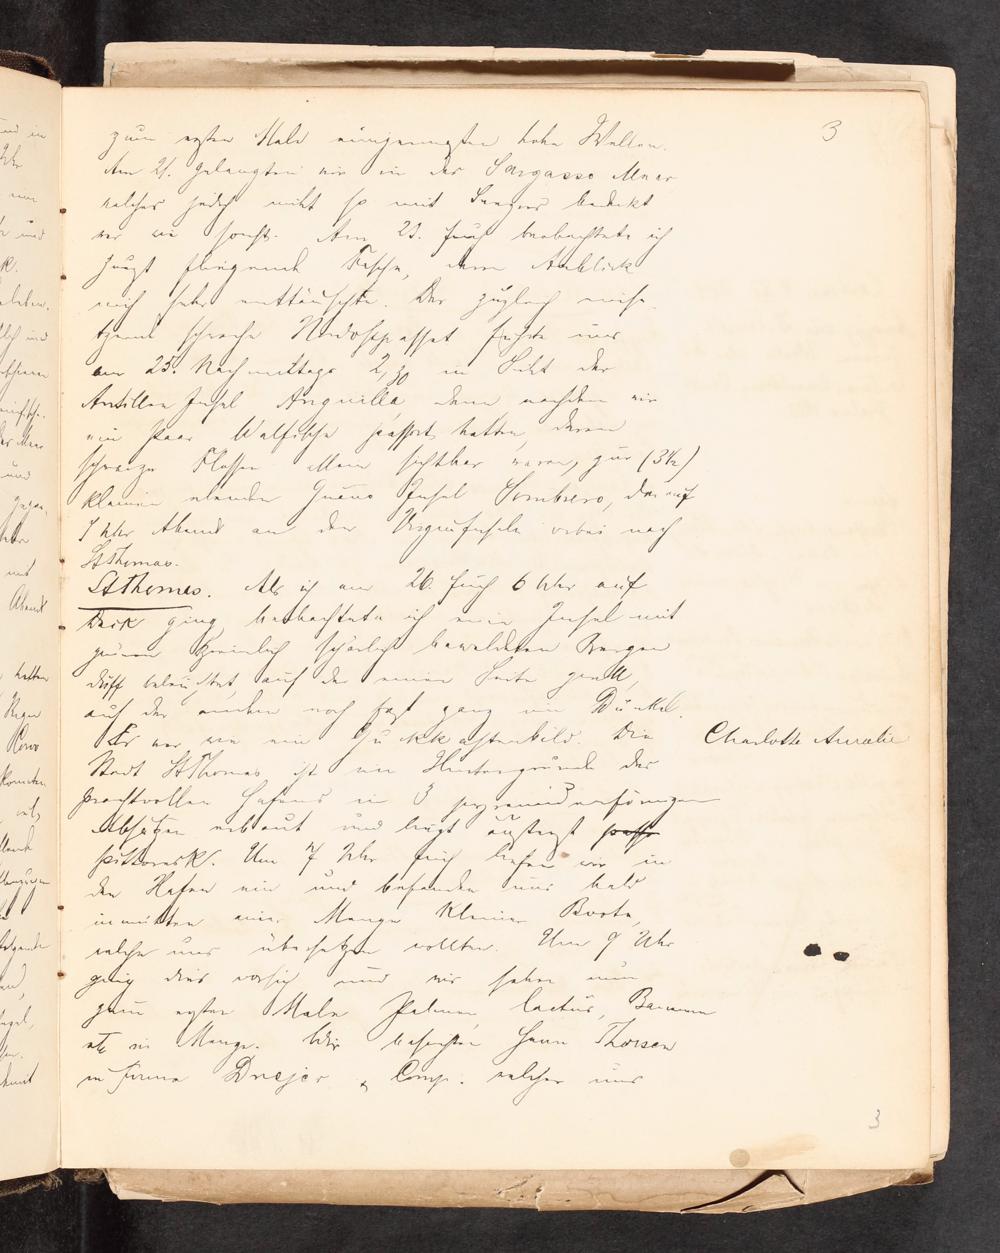 3
zum ersten Male einigermaßen hohe Wellen.
Am 21. gelangten wir in das Sargasso Meer
welches jedoch nicht so mit Tangen bedekt
war wie sonst. Am 23. früh beobachtete ich
fliegende Fische, deren Anblick
mich sehr enttäuschte. Der zugleich
schwache Nordostpassat führte uns
am 25. Nachmittags 2,30 in Sicht der
Antillen Insel Anguilla, dann nachdem wir
ein paar Walfische passirt hatten, deren
schwarze Flossen allein sichtbar waren, zur (3½)
kleinen elenden Guano Insel Sombrero, darauf
7 Uhr Abend an den Virgininseln vorbei nach
St Thomas.
St Thomas. Als ich am 26. früh 6 Uhr auf
Deck ging beobachtete ich eine Insel mit
grünen spärlich bewaldeten Bergen
beleuchtet, auf der einen Seite grell,
auf der andern noch fast ganz im Dunkel.
Es war wie ein Gukkastenbild. Die
Charlotte Amalie
Stadt St Thomas ist im Hintergrunde des
prachtvollen Hafens in 3 pyramidenförmigen
Absätzen erbaut und liegt äußerst
pittoresk. Um 7 Uhr früh liefen wir in
den Hafen ein und befanden uns bald
inmitten einer Menge kleiner Boote,
welche uns übersetzen wollten. Um 9 Uhr
ging dies vorsich und wir sahen nun
zum ersten Male Palmen, Cactus, Bananen
etc in Menge. Wir besuchten Herrn Thorsen
in Firma Drejer & Comp. welcher uns
3